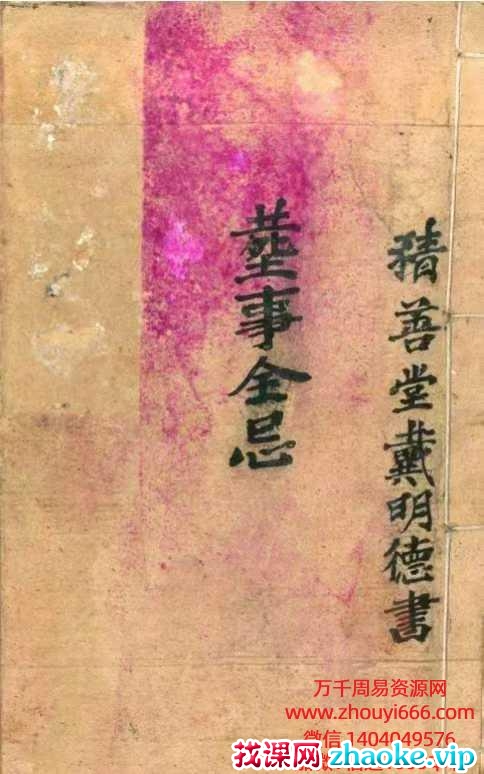 積善堂戴明德書
塟事全忌
万千周易资源网
www.zhouyi666.com
微信 1404049576
找课网zhaoke.vip